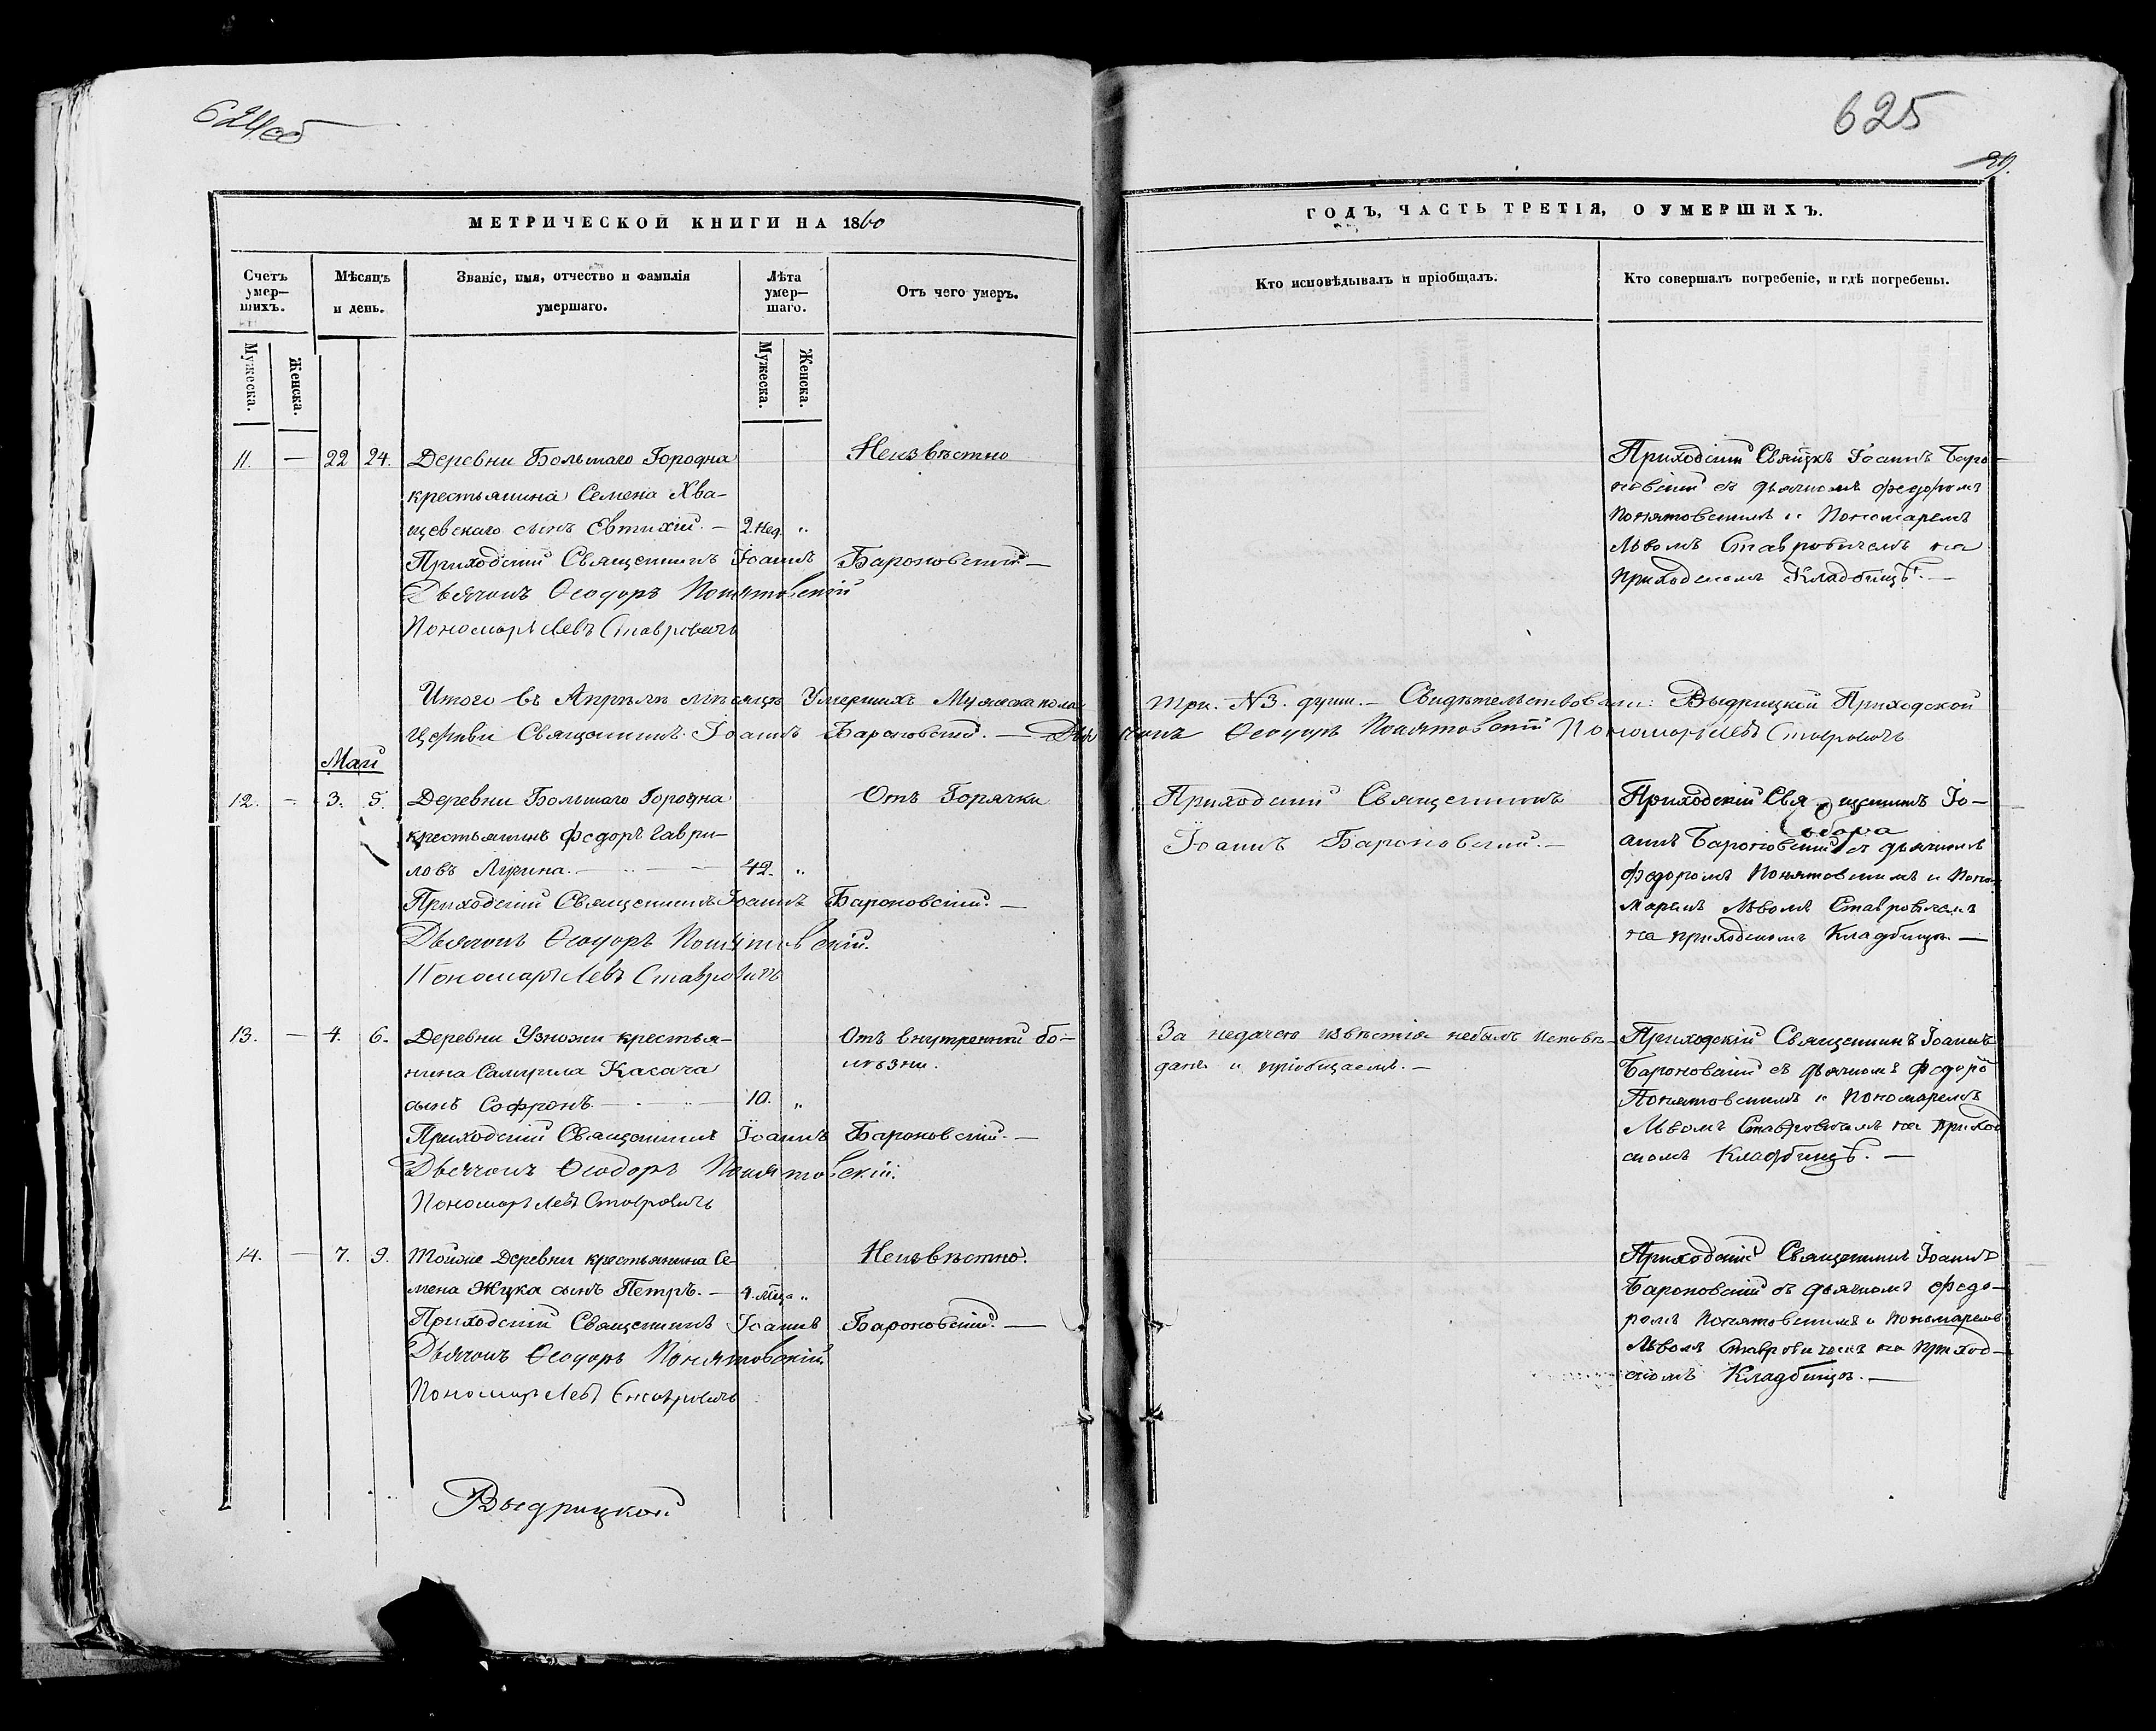 624об
625
29.
МЕТРИЧЕСКОЙ КНИГИ НА 1860
ГОДЪ, ЧАСТЬ ТРЕТІЯ, О УМЕРШИХЪ.
Счетъ умер-
шихъ.
Мѣсяцъ
и день.
Званіе, имя, отчество и фамилія
умершаго.
Лѣта
умер-
шаго.
Отъ чего умеръ.
Кто исповѣдывалъ и пріобщалъ.
Кто совершалъ погребеніе, и гдѣ погребены.
Мужеска.
Женска.
Мужеска.
Женска.
11. — 22 24. Деревни Большаго Городна
крестьянина Семена Хва-
щевскаго сынъ Евтихій. — 2. нед. „
Неизвѣстно
Приходскій Священникъ Іоаннъ Бароновскій —
Дьячокъ Ѳеодоръ Понятовскій
Пономарь Левъ Ставровичъ
Приходскій Свящ͠къ Іоаннъ Баро-
новскій съ дьячкомъ Федоромъ
Понятовскимъ и Пономаремъ
Львомъ Ставровичемъ на
приходскомъ Кладбищѣ. —
Итого въ Апрѣлѣ мѣсяцѣ Умершихъ Мужеска пола
три. №3. души. — Свидѣтельствовали: Выдрицкой Приходской
церкви Священникъ Іоаннъ Бароновскій. — Дьячокъ Ѳеодоръ Понятовскій Пономарь Левъ Ставровичъ
Май
12. — 3. 5. Деревни Большаго Городна
крестьянинъ Федоръ Гаври-
ловъ Лучина. — 42. „
Отъ Горячки
Приходскій Священникъ Іоаннъ Бароновскій. —
Дьячокъ Ѳеодоръ Понятовскій.
Пономарь Левъ Ставровичъ
Приходскій Священникъ
Іоаннъ Бароновскій. —
Приходскій Священникъ Іо-
аннъ Бароновскій съ дьячкомъ
Федоромъ Понятовскимъ и Поно-
маремъ Львомъ Ставровичемъ
на приходскомъ Кладбищѣ. —
13. — 4. 6. Деревни Узножи крестья-
нина Самуила Касача
сынъ Софронъ. — 10. „
Отъ внутренней бо-
лѣзни.
Приходскій Священникъ Іоаннъ Бароновскій. —
Дьячокъ Ѳеодоръ Понятовскій.
Пономарь Левъ Ставровичъ
За недачею извѣстія небылъ исповѣ-
данъ и пріобщаемъ. —
Приходскій Священникъ Іоаннъ
Бароновскій съ дьячкомъ Федоро
Понятовскимъ и Пономаремъ
Львомъ Ставровичемъ на приход
скомъ Кладбищѣ. —
14. — 7. 9. Тойже Деревни крестьянина Се-
мена Жука сынъ Петръ. — 4. мца „
Неизвѣстно.
Приходскій Священникъ Іоаннъ Бароновскій. —
Дьячокъ Ѳеодоръ Понятовскій
Пономарь Левъ Ставровичъ
Приходскій Священникъ Іоаннъ
Бароновскій съ дьячкомъ Федо-
ромъ Понятовскимъ и Пономаремъ
Львомъ Ставровичемъ на приход-
скомъ Кладбищѣ. —
Выдрицкой